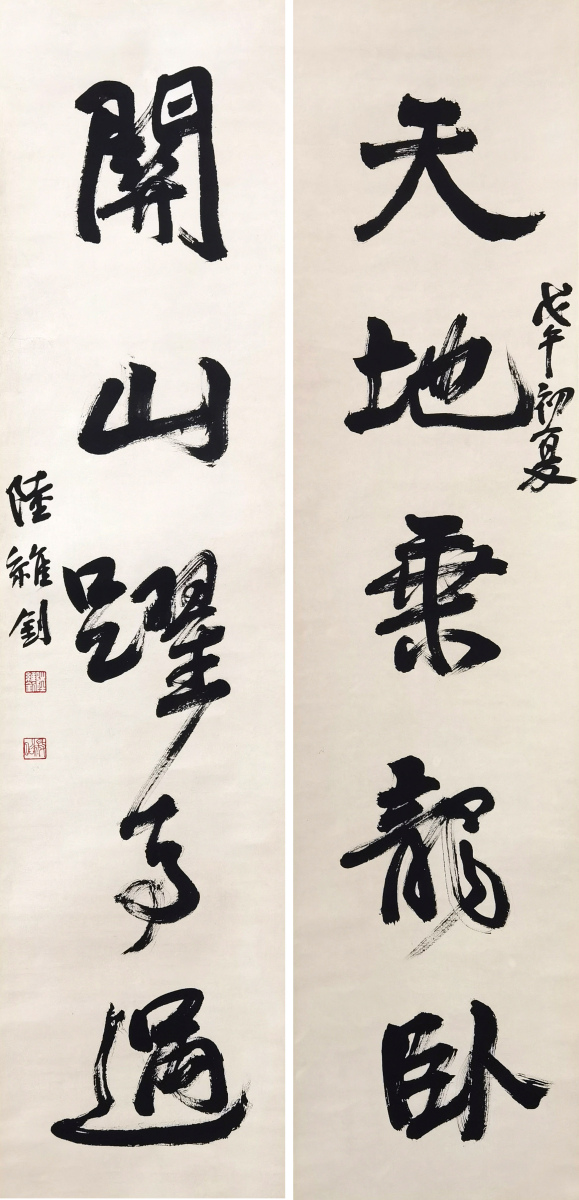 天地乘龍臥
戊午初夏
關山躍馬過
陸維釗